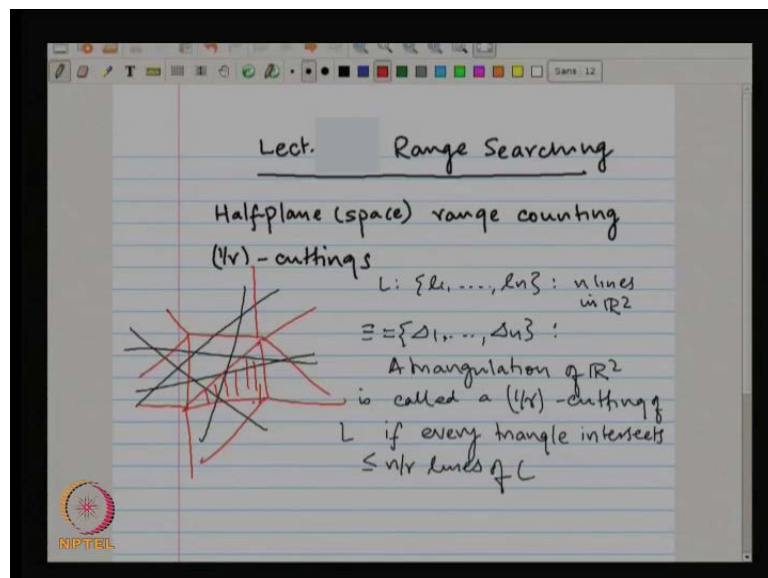 Sans 12
Lect. Range Searching
Half-plane (space) range counting
(1/r) - cuttings
L: {l1, ...., ln} : n lines
in ℝ²
Ξ = {Δ1, ..., Δu} :
A triangulation of ℝ²
is called a (1/r) - cutting of
L if every triangle intersects
≤ n/r lines of L
NPTEL